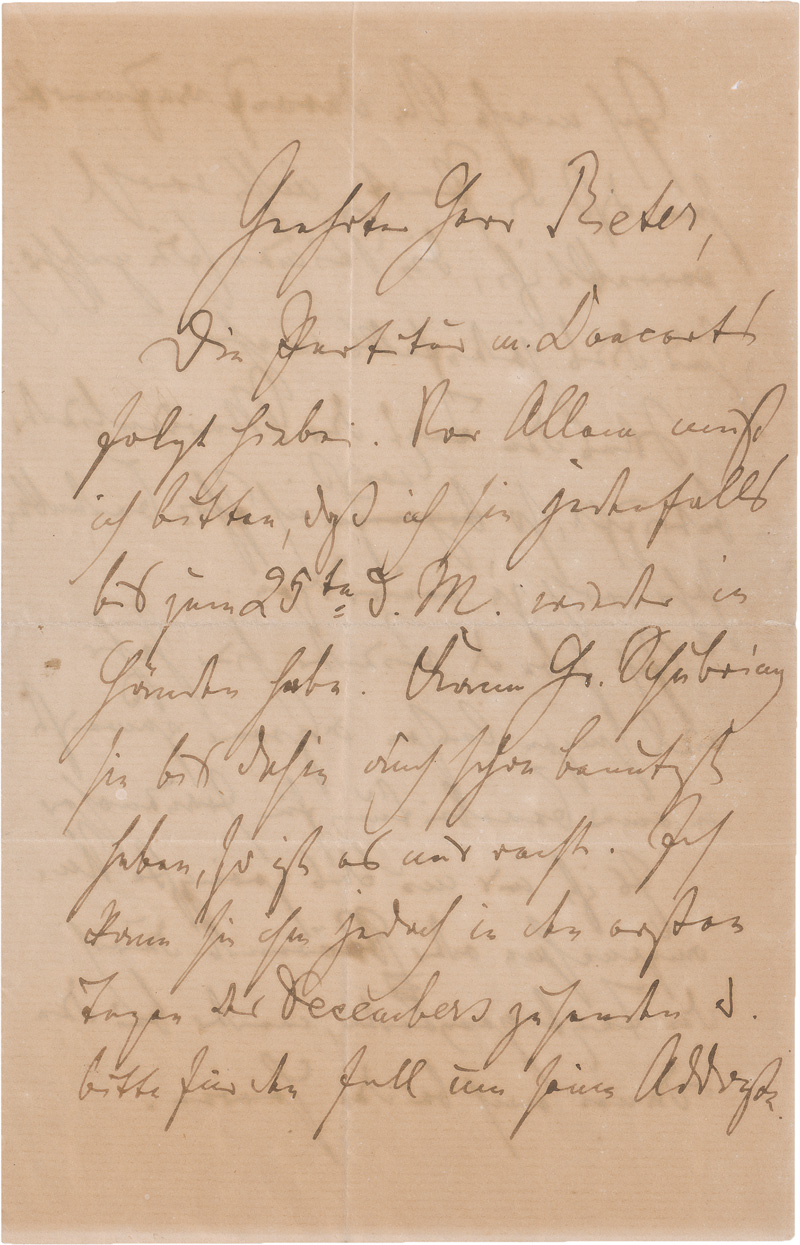 Geehrter Herr Rieter,
Die Partitur m. Concerts
folgt hiebei. Vor Allem muß
ich bitten, daß ich sie jedenfalls
bis zum 25ten d. M. wieder in
Händen habe. Kann Hr. Schubring
sie bis dahin auch schon benutzt
haben, so ist es mir recht. Ich
kann sie ihm jedoch in den ersten
Tagen des Decembers zusenden u.
bitte für den Fall um seine Addresse.